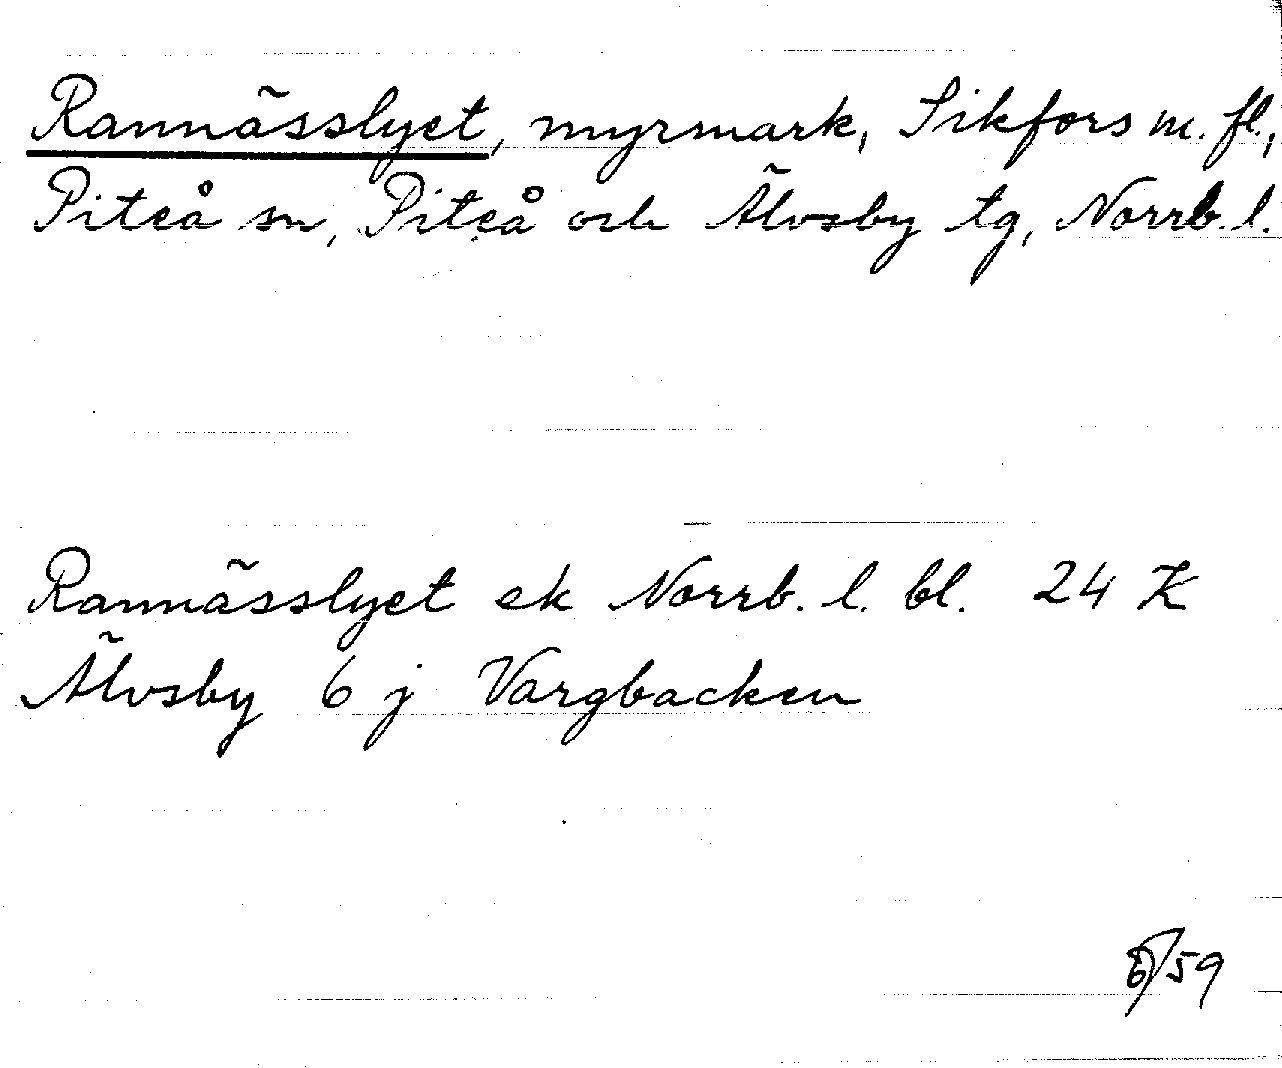 Rannässlyet, myrmark, Sikfors m. fl.,
Piteå sn, Piteå och Älvsby tg, Norrb. l.
Rannässlyet ek Norrb. l. bl. 24 K
Älvsby 6 j Vargbacken
59